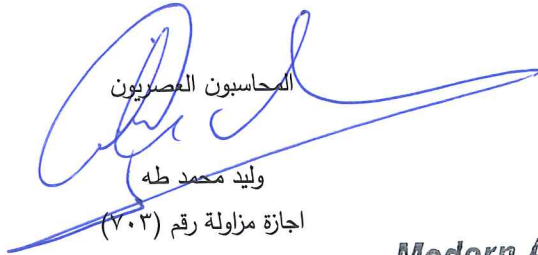 المحاسبون العصريون
وليد محمد طه
اجازة مزاولة رقم (٧٠٣)
Modern